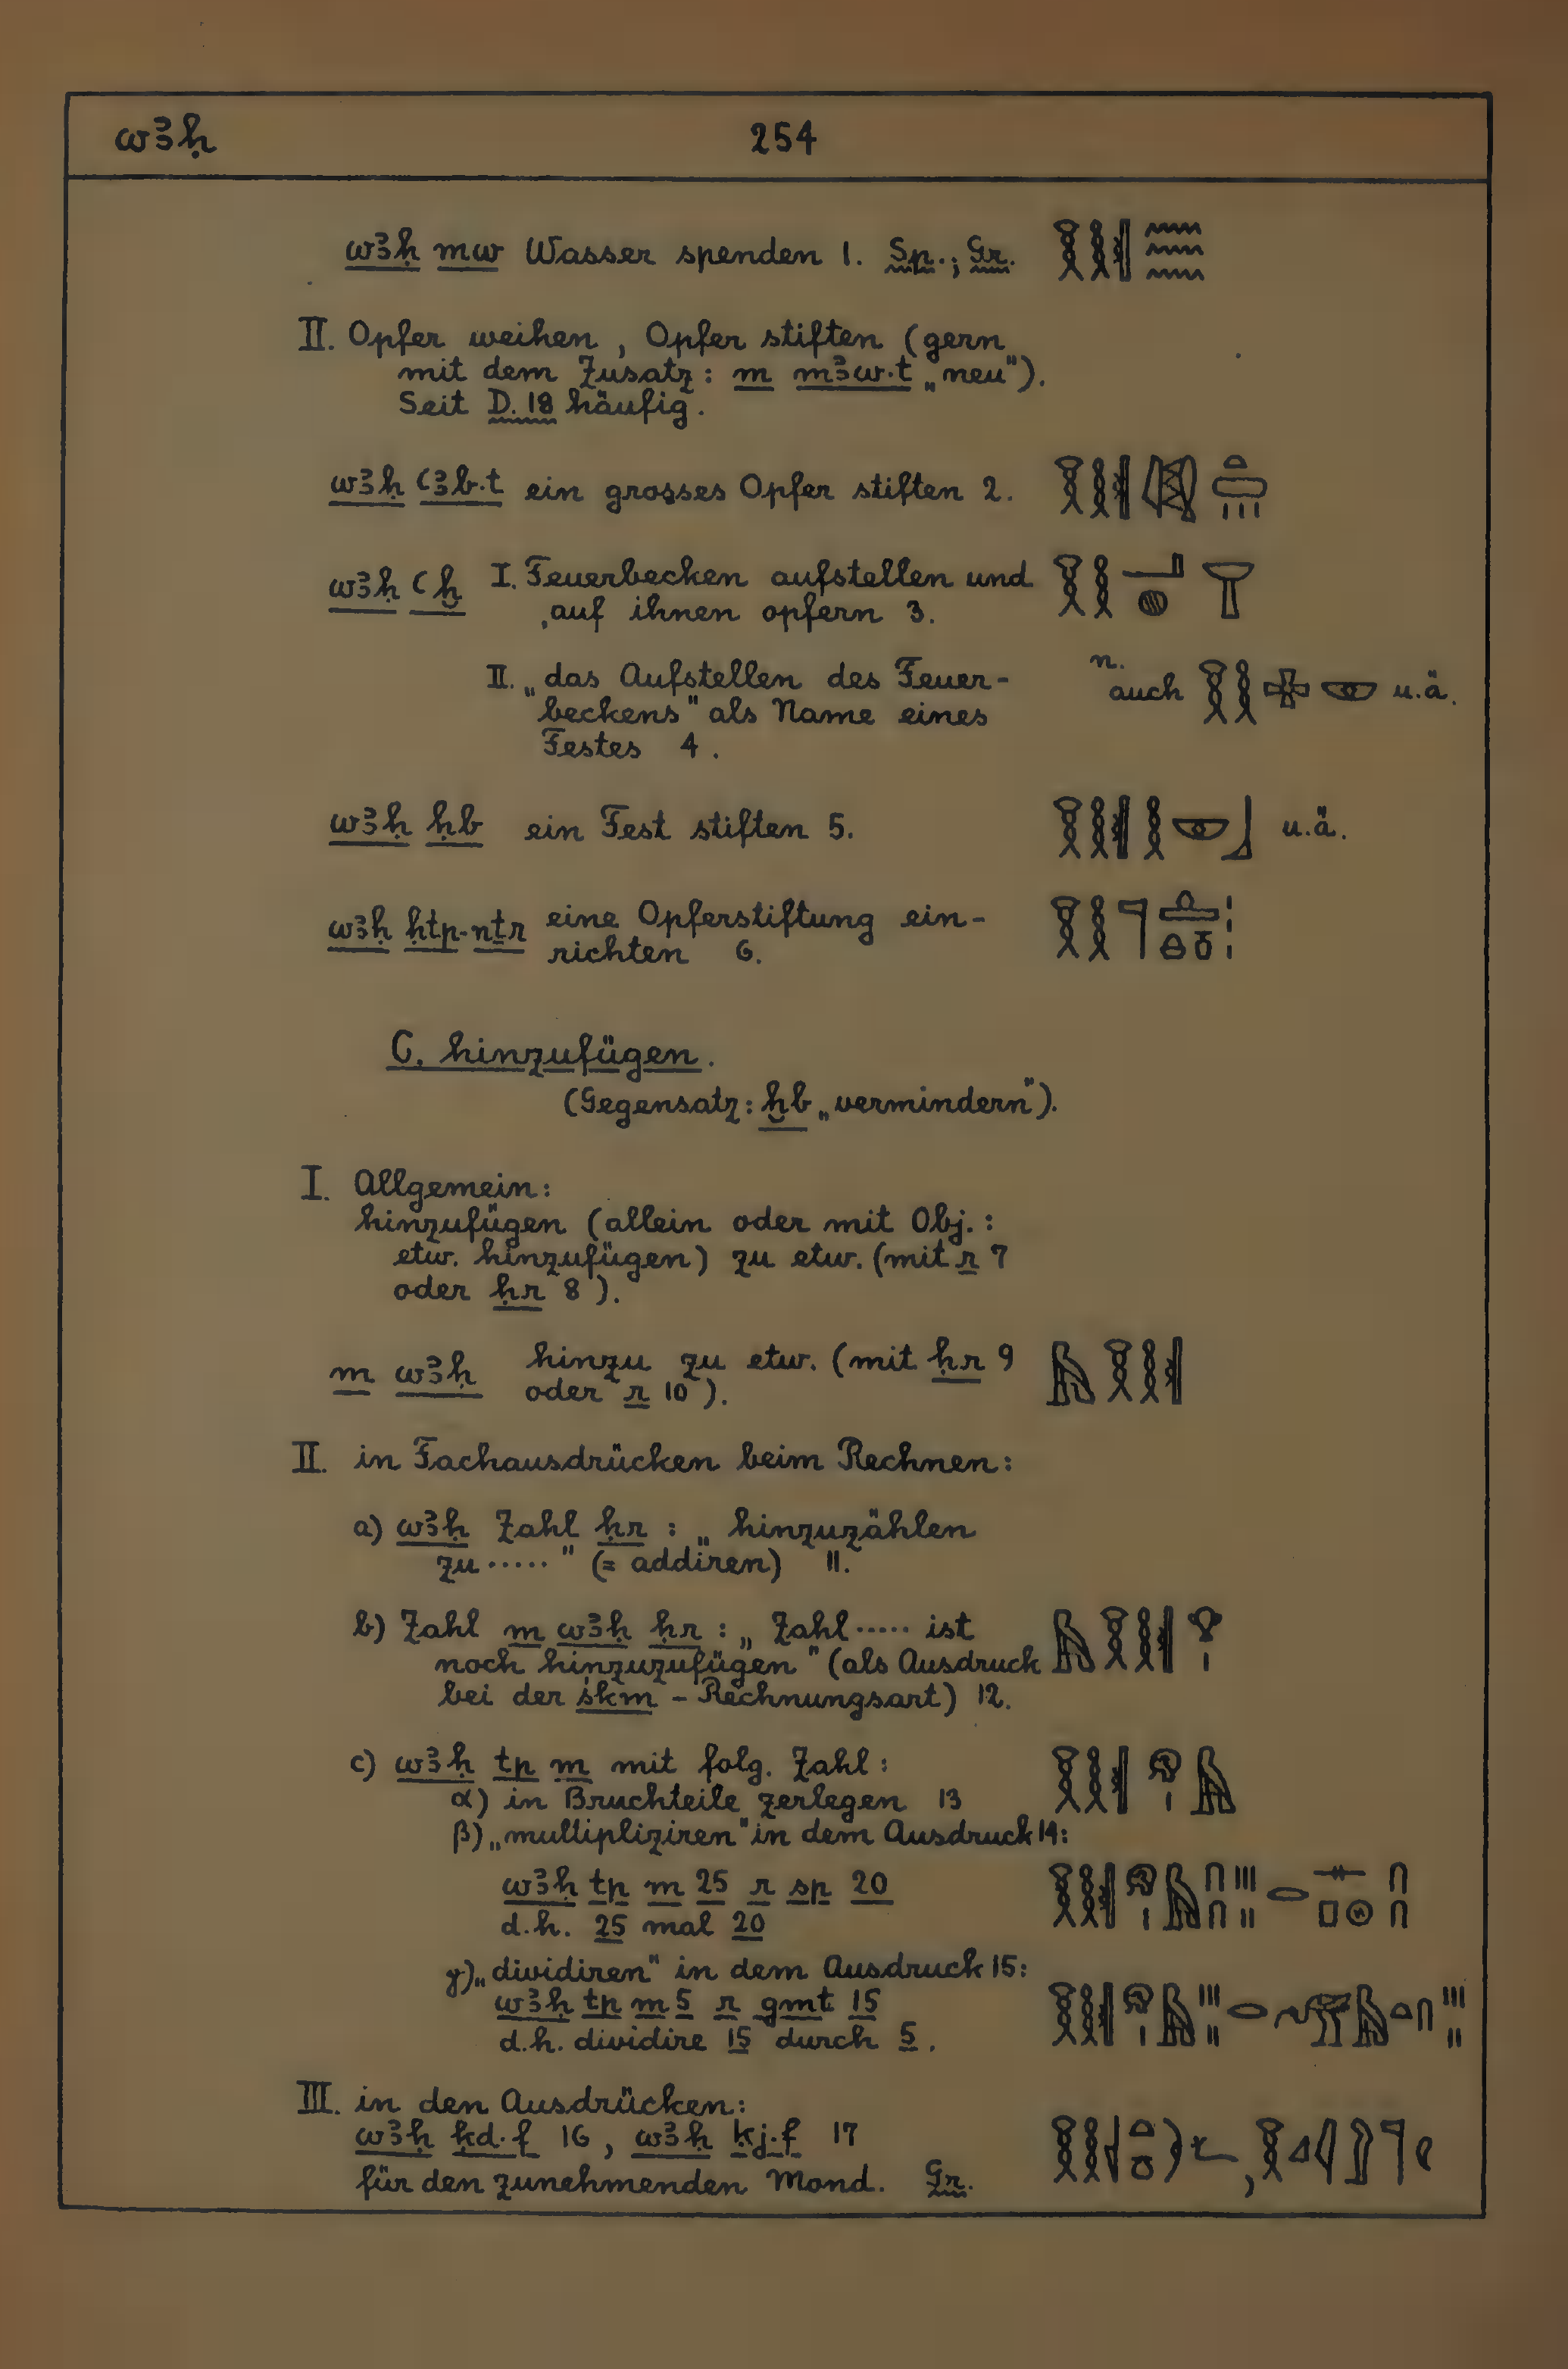 wꜣḥ 254
wꜣḥ mw Wasser spenden 1. Sp.; Gr.
II. Opfer weihen, Opfer stiften (gern
mit dem Zusatz: m mꜣw.t „neu").
Seit D. 18 häufig.
wꜣḥ ꜥꜣb.t ein grosses Opfer stiften 2.
wꜣḥ ꜥḫ I. Feuerbecken aufstellen und
auf ihnen opfern 3.
II. „das Aufstellen des Feuer-
beckens" als Name eines
Festes 4.
n.
auch u.ä.
wꜣḥ ḥb ein Fest stiften 5. u.ä.
wꜣḥ ḥtp-nṯr eine Opferstiftung ein-
richten 6.
C. hinzufügen.
(Gegensatz: ḫb „vermindern").
I. Allgemein:
hinzufügen (allein oder mit Obj.:
etw. hinzufügen) zu etw. (mit r 7
oder ḥr 8).
m wꜣḥ hinzu zu etw. (mit ḥr 9
oder r 10).
II. in Fachausdrücken beim Rechnen:
a) wꜣḥ Zahl ḥr: „hinzuzählen
zu ....." (= addiren) 11.
b) Zahl m wꜣḥ ḥr: „Zahl ..... ist
noch hinzuzufügen" (als Ausdruck
bei der śkm - Rechnungsart) 12.
c) wꜣḥ tp m mit folg. Zahl:
α) in Bruchteile zerlegen 13
β) „multipliziren" in dem Ausdruck 14:
wꜣḥ tp m 25 r sp 20
d.h. 25 mal 20
γ) „dividiren" in dem Ausdruck 15:
wꜣḥ tp m 5 r gmt 15
d.h. dividire 15 durch 5.
III. in den Ausdrücken:
wꜣḥ ḳd.f 16, wꜣḥ ḳj.f 17
für den zunehmenden Mond. Gr.